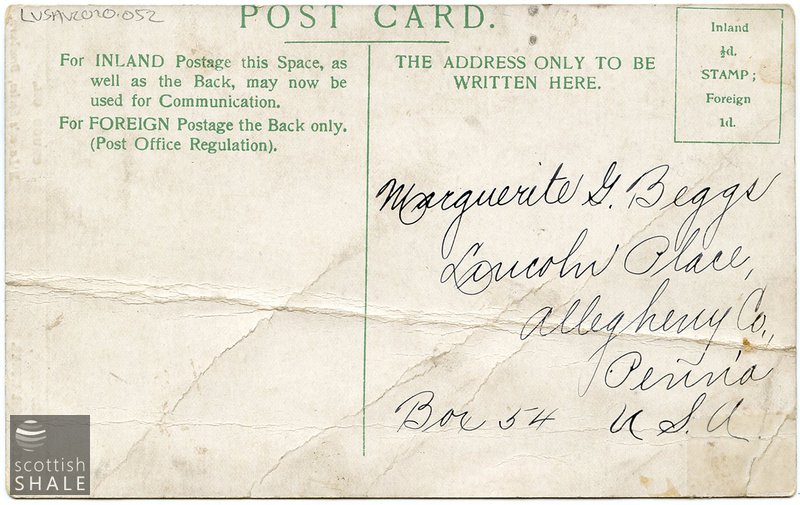 LVSAV2020.052
POST CARD.
For INLAND Postage this Space, as
well as the Back, may now be
used for Communication.
For FOREIGN Postage the Back only.
(Post Office Regulation).
THE ADDRESS ONLY TO BE
WRITTEN HERE.
Inland
½d.
STAMP;
Foreign
1d.
Marguerite G. Beggs
Lincoln Place,
Allegheny Co.,
Penn'a
Box 54 U.S.A.
scottish
SHALE